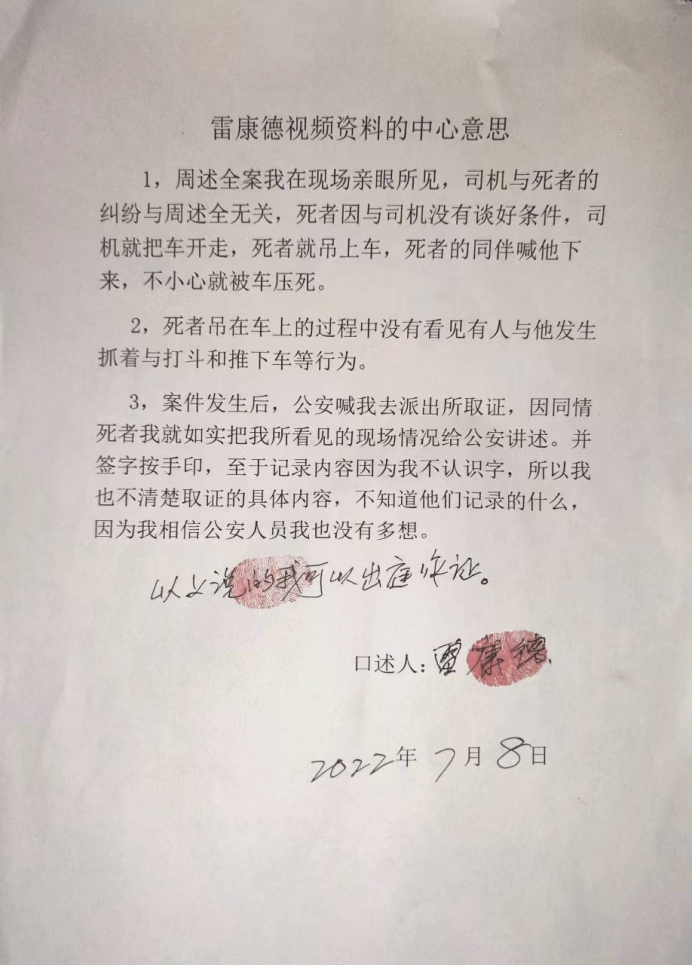 雷康德视频资料的中心意思
1，周述全案我在现场亲眼所见，司机与死者的
纠纷与周述全无关，死者因与司机没有谈好条件，司
机就把车开走，死者就吊上车，死者的同伴喊他下
来，不小心就被车压死。
2，死者吊在车上的过程中没有看见有人与他发生
抓着与打斗和推下车等行为。
3，案件发生后，公安喊我去派出所取证，因同情
死者我就如实把我所看见的现场情况给公安讲述。并
签字按手印，至于记录内容因为我不认识字，所以我
也不清楚取证的具体内容，不知道他们记录的什么，
因为我相信公安人员我也没有多想。
以上说的我可以出庭作证。
口述人：雷康德
2022年7月8日